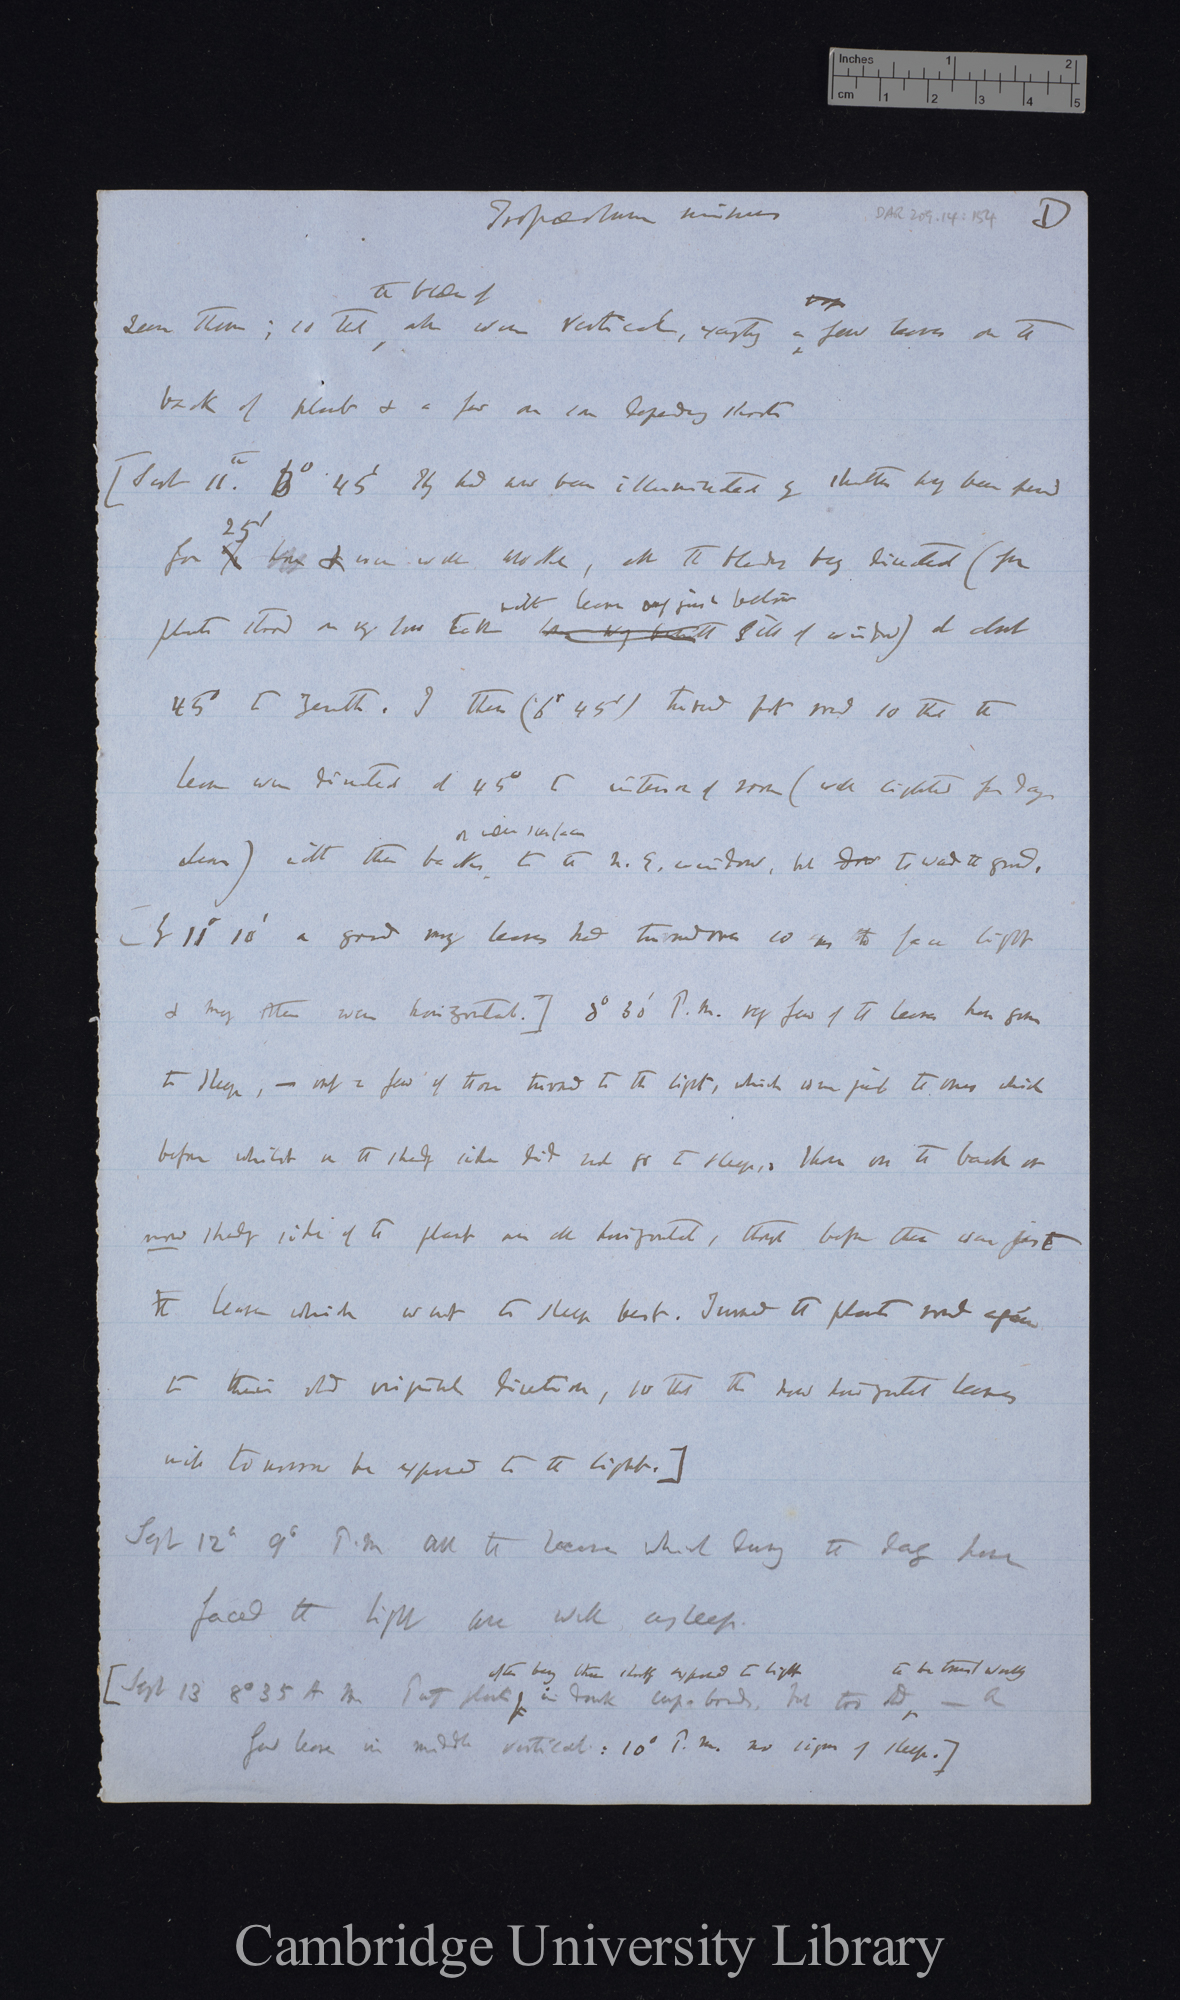 Inches 1 2
cm 1 2 3 4 5
Tropæolum minus
DAR 209.14:154
D
the blades of
seen them; so that, all were vertical, excepting a few leaves on the
back of plant & a few on depending shoots
[Sept 11th. 6° 45' They had now been illuminated by shutters having been opened
25'
for & were well awake, all the blades being directed (for
with leaves only just below
plants stood on very low table sill of window) at about
45° to Zenith. I then (6° 45') turned pot round so that the
leaves were directed at 45° to interior of room (well lighted for days
or under surfaces
alone) with their backs to the N.E. window, but toward the ground.
[By 11° 10' a good many leaves had turned over so as to face light
& many others were horizontal.] 8° 30' P.M. very few of the leaves have gone
to sleep, — only a few of those turned to the light, which were just the ones which
before whilst on the shady side did not go to sleep. Those on the back or
now shady side of the plant are all horizontal, though before these were just
the leaves which went to sleep best. Turned the plants round again
to their old original direction, so that the now horizontal leaves
will tomorrow be exposed to the light.]
Sept 12th 9° P.M. All the leaves which during the day have
faced the light are well asleep.
after being then shortly exposed to light to be trusted
[Sept 13 8° 35 A M Put plants in dark cup-board, but too old, — a
few leaves in middle vertical: 10° P.M. no signs of sleep.]
Cambridge University Library